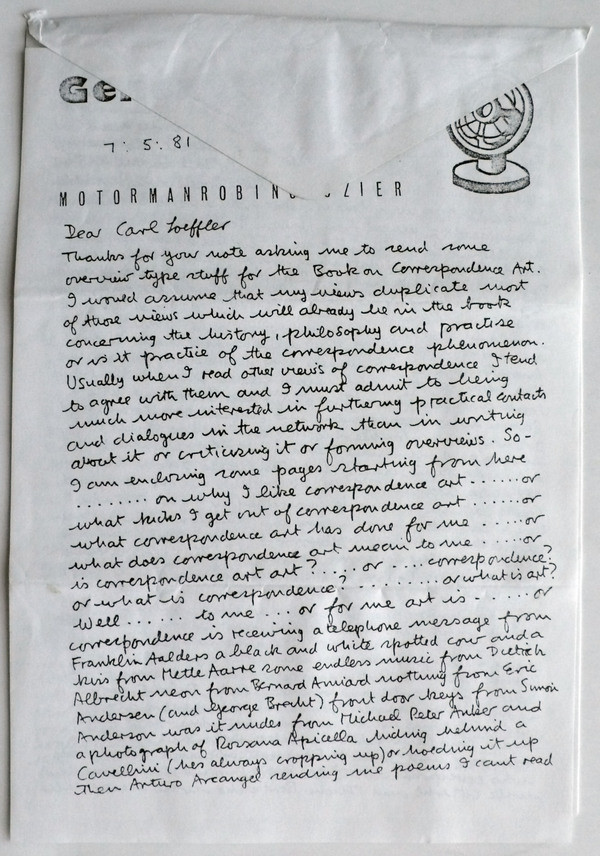 Ge
7. 5. 81
MOTORMANROBIN ZIER
Dear Carl Loeffler
Thanks for your note asking me to send some
overview type stuff for the Book on Correspondence Art.
I would assume that my views duplicate most
of those views which will already be in the book
concerning the history, philosophy and practise
or is it practice of the correspondence phenomenon.
Usually when I read other views of correspondence I tend
to agree with them and I must admit to being
much more interested in furthering practical contacts
and dialogues in the network than in writing
about it or criticising it or forming overviews. So-
I am enclosing some pages starting from here
......... on why I like correspondence art ......or
what kicks I get out of correspondence art ......or
what correspondence art has done for me .....or
what does correspondence art mean to me .....or
is correspondence art art?.....or ....correspondence?
or what is correspondence?..........or what is art?
Well ...... to me ... or for me art is ......or
correspondence is receiving a telephone message from
Franklin Aalders a black and white spotted cow and a
kiss from Mette Aarre some endless music from Dietrich
Albrecht neon from Bernard Amiard nothing from Eric
Andersen (and George Brecht) front door keys from Simon
Anderson was it nudes from Michael Peter Anker and
a photograph of Rosana Apicella hiding behind a
Cavellini (hes always cropping up) or holding it up
then Arturo Arcangel sending me poems I cant read